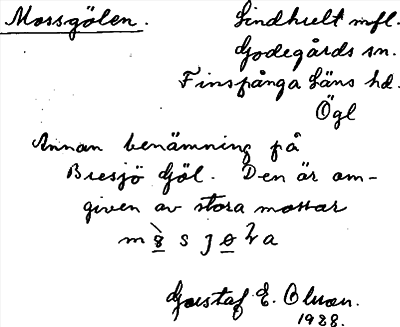 Mossgölen. Lindhult mfl.
Godegårds sn.
Finspånga läns hd.
Ögl
Annan benämning på
Bresjö Göl. Den är om-
given av stora mossar
Gustaf E. Olsson.
1928.